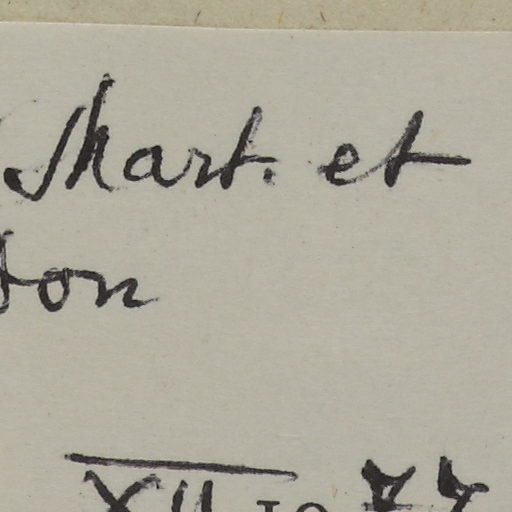 Mart. et
ton
XII 19 77